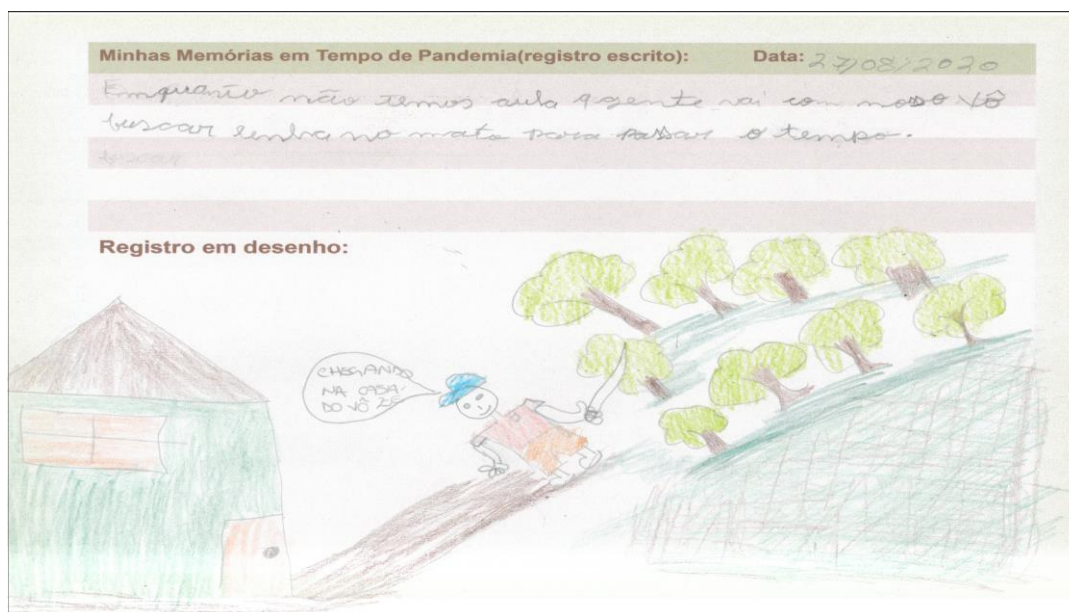 Minhas Memórias em Tempo de Pandemia(registro escrito): Data: 27/08/2020
Enquanto não temos aula agente vai com nosso vô
buscar lenha no mata para passar o tempo.
buscar
Registro em desenho:
CHEGANDO
NA CASA
DO VÔ ZÉ